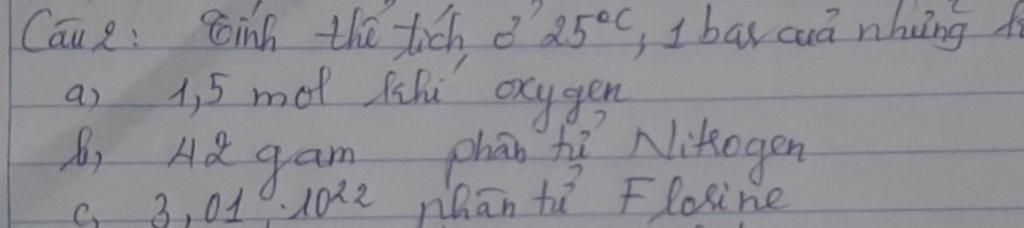 Câu 2: Tính thể tích ở 25°C, 1 bar của những
a) 1,5 mol khí oxygen
b, 42 gam phân tử Nitrogen
c, 3,01.10²² phân tử Florine